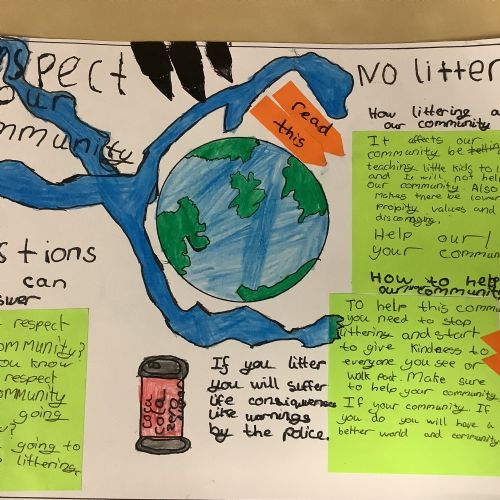 spect
our
mmunity
stions
can
swer
respect
ommunity?
ou know
respect
ommunity
going
?
going to
littering
read
this
coca
cola
zero
If you litter
you will suffer
life consiquences
like warnings
by the police.
No litter
How littering a
our community
It affects our
community be
teaching little kids to l
and It will not hel
our community. Also
makes there be lower
propity values and
discoraging.
Help our/
your commun
How to help
our community
To help this commu
you need to stop
littering and start
to give kindness to
everyone you see or
walk past. Make sure
to help your community
If your community If
you do you will have a
better world and community